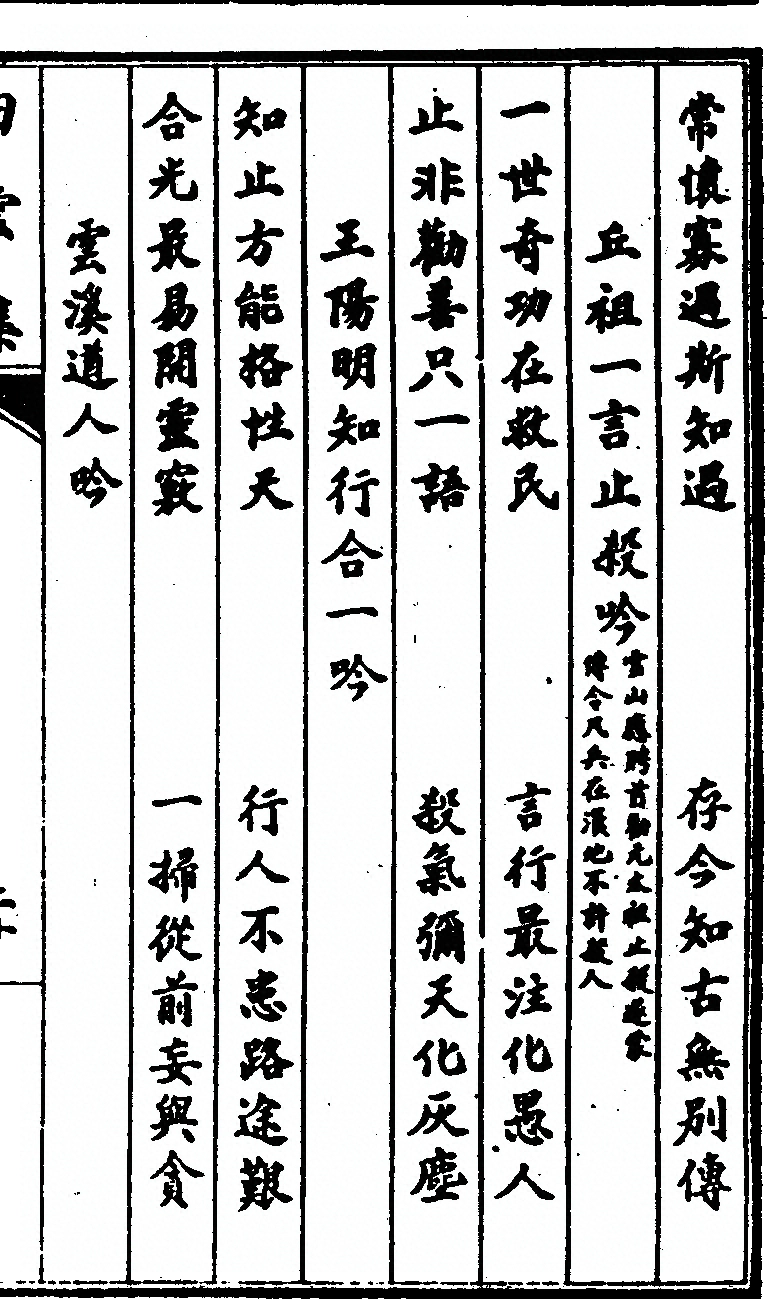 常懷寡過斯知過　存今知古無別傳
丘祖一言止殺吟
雪山應聘首勸元太祖止殺遂蒙
傳令凡兵在漢地不許殺人
一世奇功在救民　言行最注化愚人
止非勸善只一語　殺氣彌天化灰塵
王陽明知行合一吟
知止方能格性天　行人不患路途艱
合光最易開靈竅　一掃從前妄與貪
雲溪道人吟